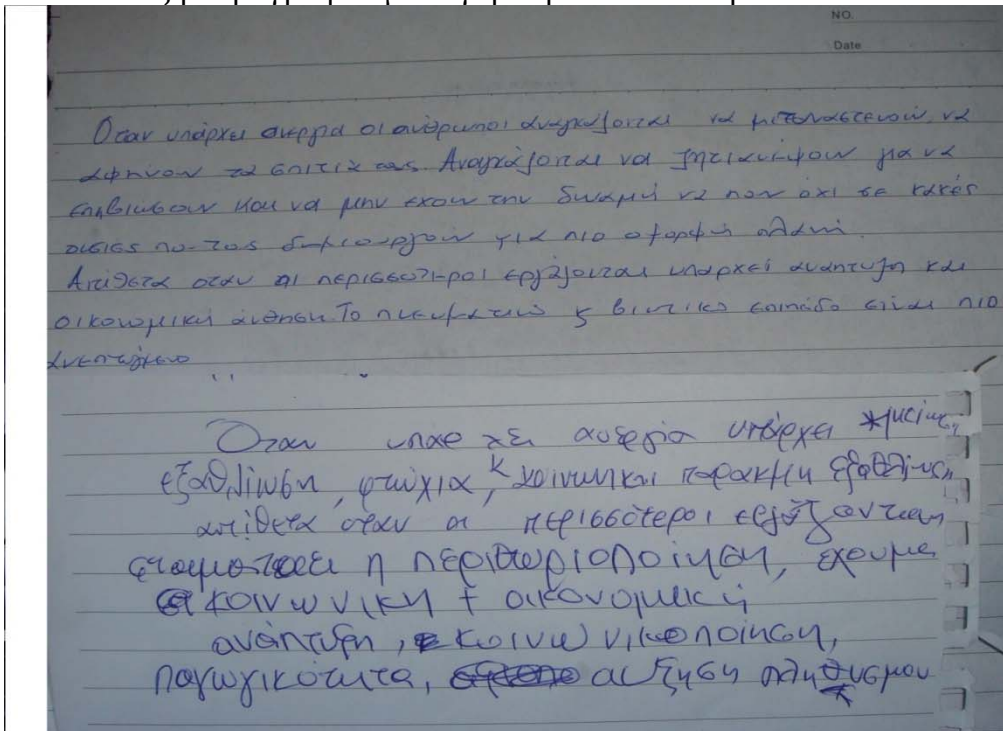 NO.
Date
Οταν υπάρχει ανεργια οι ανθρωποι αναγκαζονται να μετεναστευουν, να
αφηνουν τα σπιτια τους Αναγκάζονται να για να
επιβιωσουν και να μην εχουν την δυναμη να πουν όχι σε κακές
που τους δημιουργούν για πιο ομορφη
Αντιθετα οταν οι περισσότεροι εργάζονται υπαρχει αναπτυξη και
οικονομικη ανθηση Το πνευματικο κ βιοτικο επιπεδο είναι πιο
Οταν υπαρχει ανεργια υπάρχει
εξαθλίωση, φτώχια, κ κοινωνικη παρακμη εξαθλίωση
αντίθετα οταν οι περισσότεροι εργάζονται
σταματαει η περιθωριοποιηση, έχουμε
κοινωνικη + οικονομικη
ανάπτυξη, κοινωνικοποίηση,
παγωγικότητα, αυξηση πληθυσμου